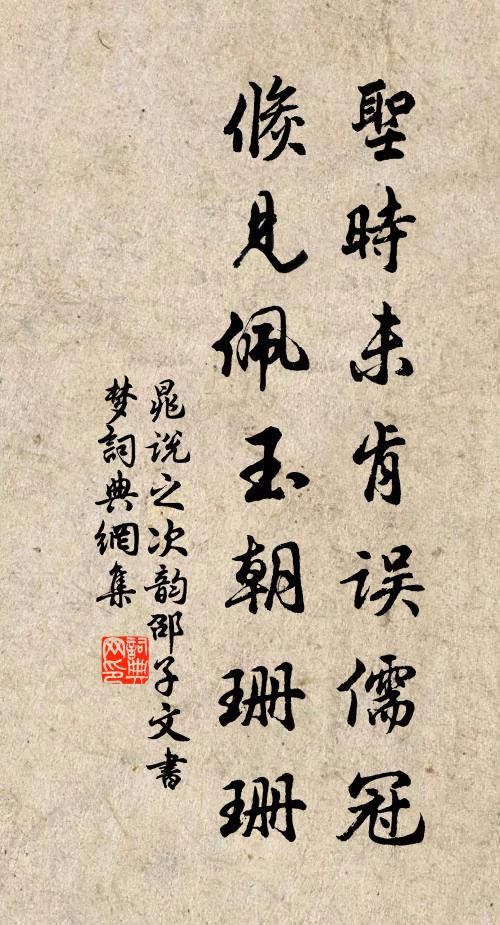 聖時未肯误儒冠
倐見佩玉朝珊珊
晁说之次韵邵子文書
梦詞典網集
詞典
网印